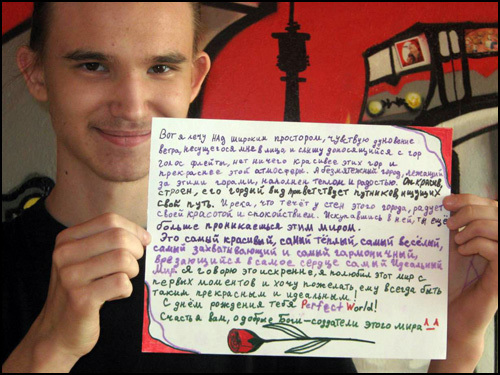 Вот я лечу над широким простором, чувствую дуновение
ветра, несущегося мне в лицо и слышу доносящийся с гор
голос флейты, нет ничего красивее этих гор и
прекраснее этой атмосферы. А безмятежный город, лежащий
за этими горами, наполнен теплом и радостью. Он красив,
строен, его гордый вид приветствует путников ищущих
свой путь. И река, что течёт у стен этого города, радует
своей красотой и спокойствием. Искупавшись в ней, ты ещё
больше проникаешься этим миром.
Это самый красивый, самый тёплый, самый весёлый,
самый захватывающий и самый гармоничный,
врезающийся в самое сердце самый Идеальный
Мир. Я говорю это искренне, я полюбил этот мир с
первых моментов и хочу пожелать, ему всегда быть
таким прекрасным и идеальным!
С днём рождения тебя Perfect World!
Счастья вам, о добрые Боги-создатели этого мира^_^